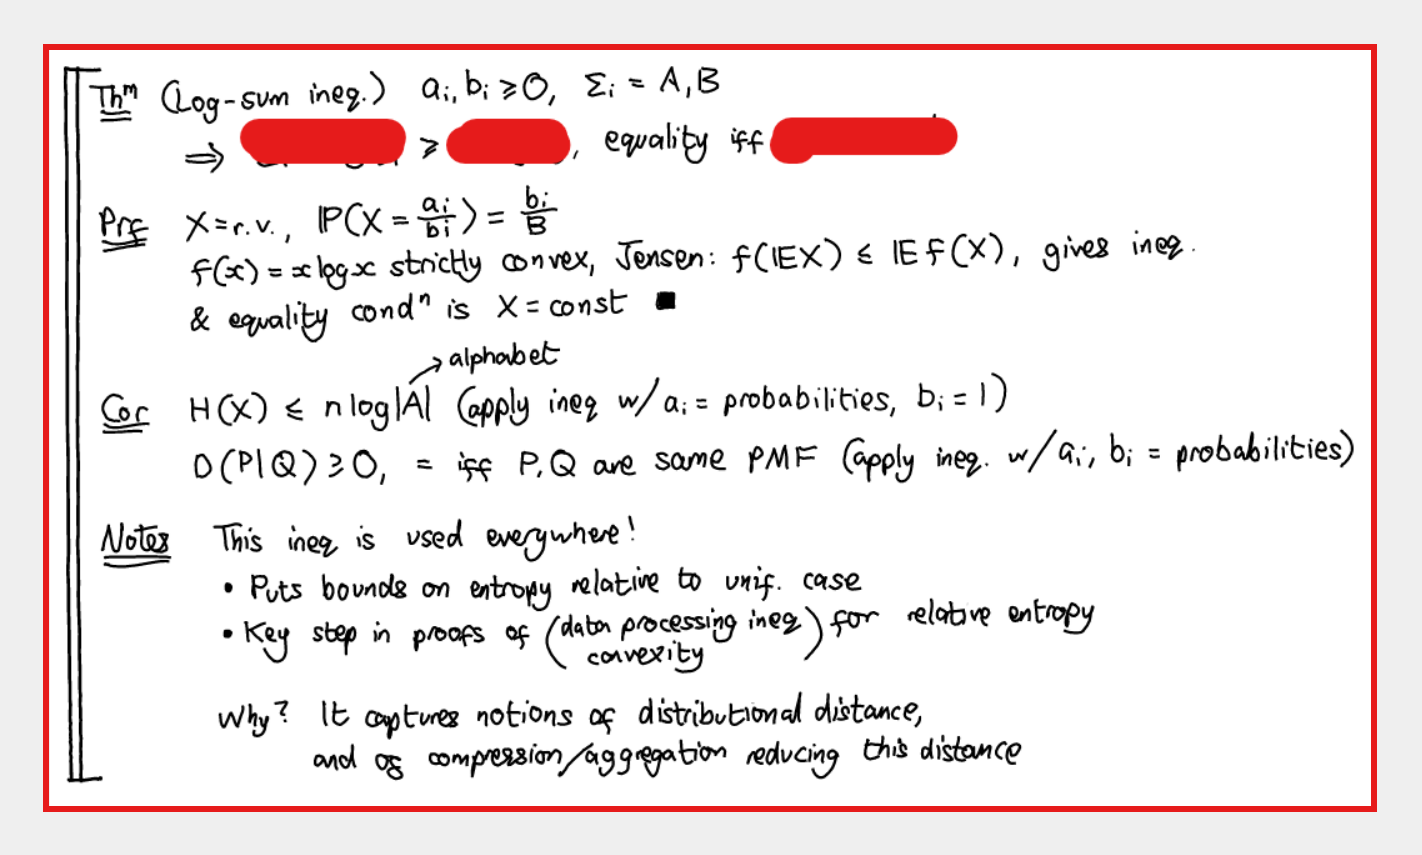 Thᵐ (Log-sum ineq.) aᵢ, bᵢ ⩾ 0, Σᵢ = A, B
⇒ ⩾ , equality iff
Prf X = r.v., ℙ(X = aᵢ/bᵢ) = bᵢ/B
f(x) = x log x strictly convex, Jensen: f(𝔼X) ≤ 𝔼f(X), gives ineq.
& equality condⁿ is X = const ■
→ alphabet
Cor H(X) ≤ n log|A| (apply ineq w/ aᵢ = probabilities, bᵢ = 1)
D(P|Q) ⩾ 0, = iff P, Q are same PMF (apply ineq. w/ aᵢ, bᵢ = probabilities)
Notes This ineq is used everywhere!
• Puts bounds on entropy relative to unif. case
• Key step in proofs of (data processing ineq) for relative entropy
convexity
Why? It captures notions of distributional distance,
and of compression/aggregation reducing this distance